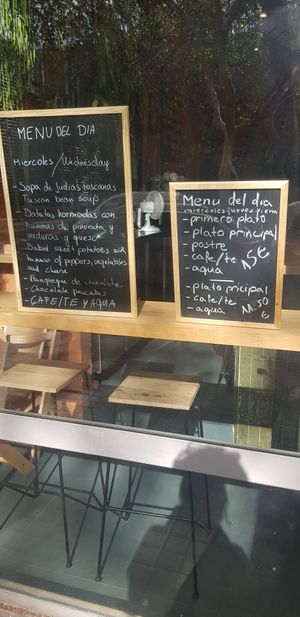 MENU DEL DIA
Miercoles / Wednesday
- Sopa de Judias toscanas
Tuscan bean soup
- Batatas horneadas con
hummus de pimienta y
verduras y queso
- Baked sweet potatoes with
humus of peppers, vegetables
and cheese
- Panqueque de chocolate
- Chocolate pancakes
- CAFE/TE Y AQUA
Menu del dia
miercoles jueves
- primero plato
- plato principal
- postre
- cafe/te
- aqua
15€
- plato pricipal
- cafe/te
- aqua
11.50
€